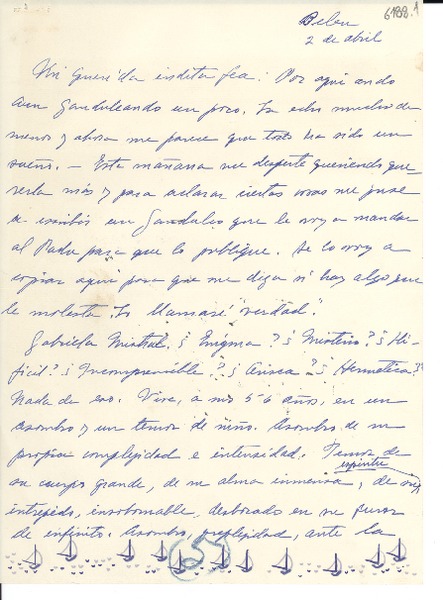 6188.1
Belem
2 de abril
Mi querida indita fea: Por aquí ando
aun ganduleando un poco. La echo mucho de
menos y ahora me parece que todo ha sido un
sueño. — Esta mañana me desperté queriendo que
verla más y para aclarar ciertas cosas me puse
a escribir un Gandulco que le voy a mandar
al Padre para que lo publique. Se lo voy a
copiar aquí para que me diga si hay algo que
le molesta. Lo llamaré "verdad".
Gabriela Mistral, ¿Enigma? ¿Misterio? ¿Di-
fícil? ¿Incomprensible? ¿Arisca? ¿Hermética?
Nada de eso. Vive, a sus 56 años, en un
asombro y un temor de niño. Asombro de su
propia complejidad e intensidad. Temor de
espíritu
su cuerpo grande, de su alma inmensa, de su
intrépido, insobornable, desbocado en su furor
de infinito. Asombro, perplejidad, ante la